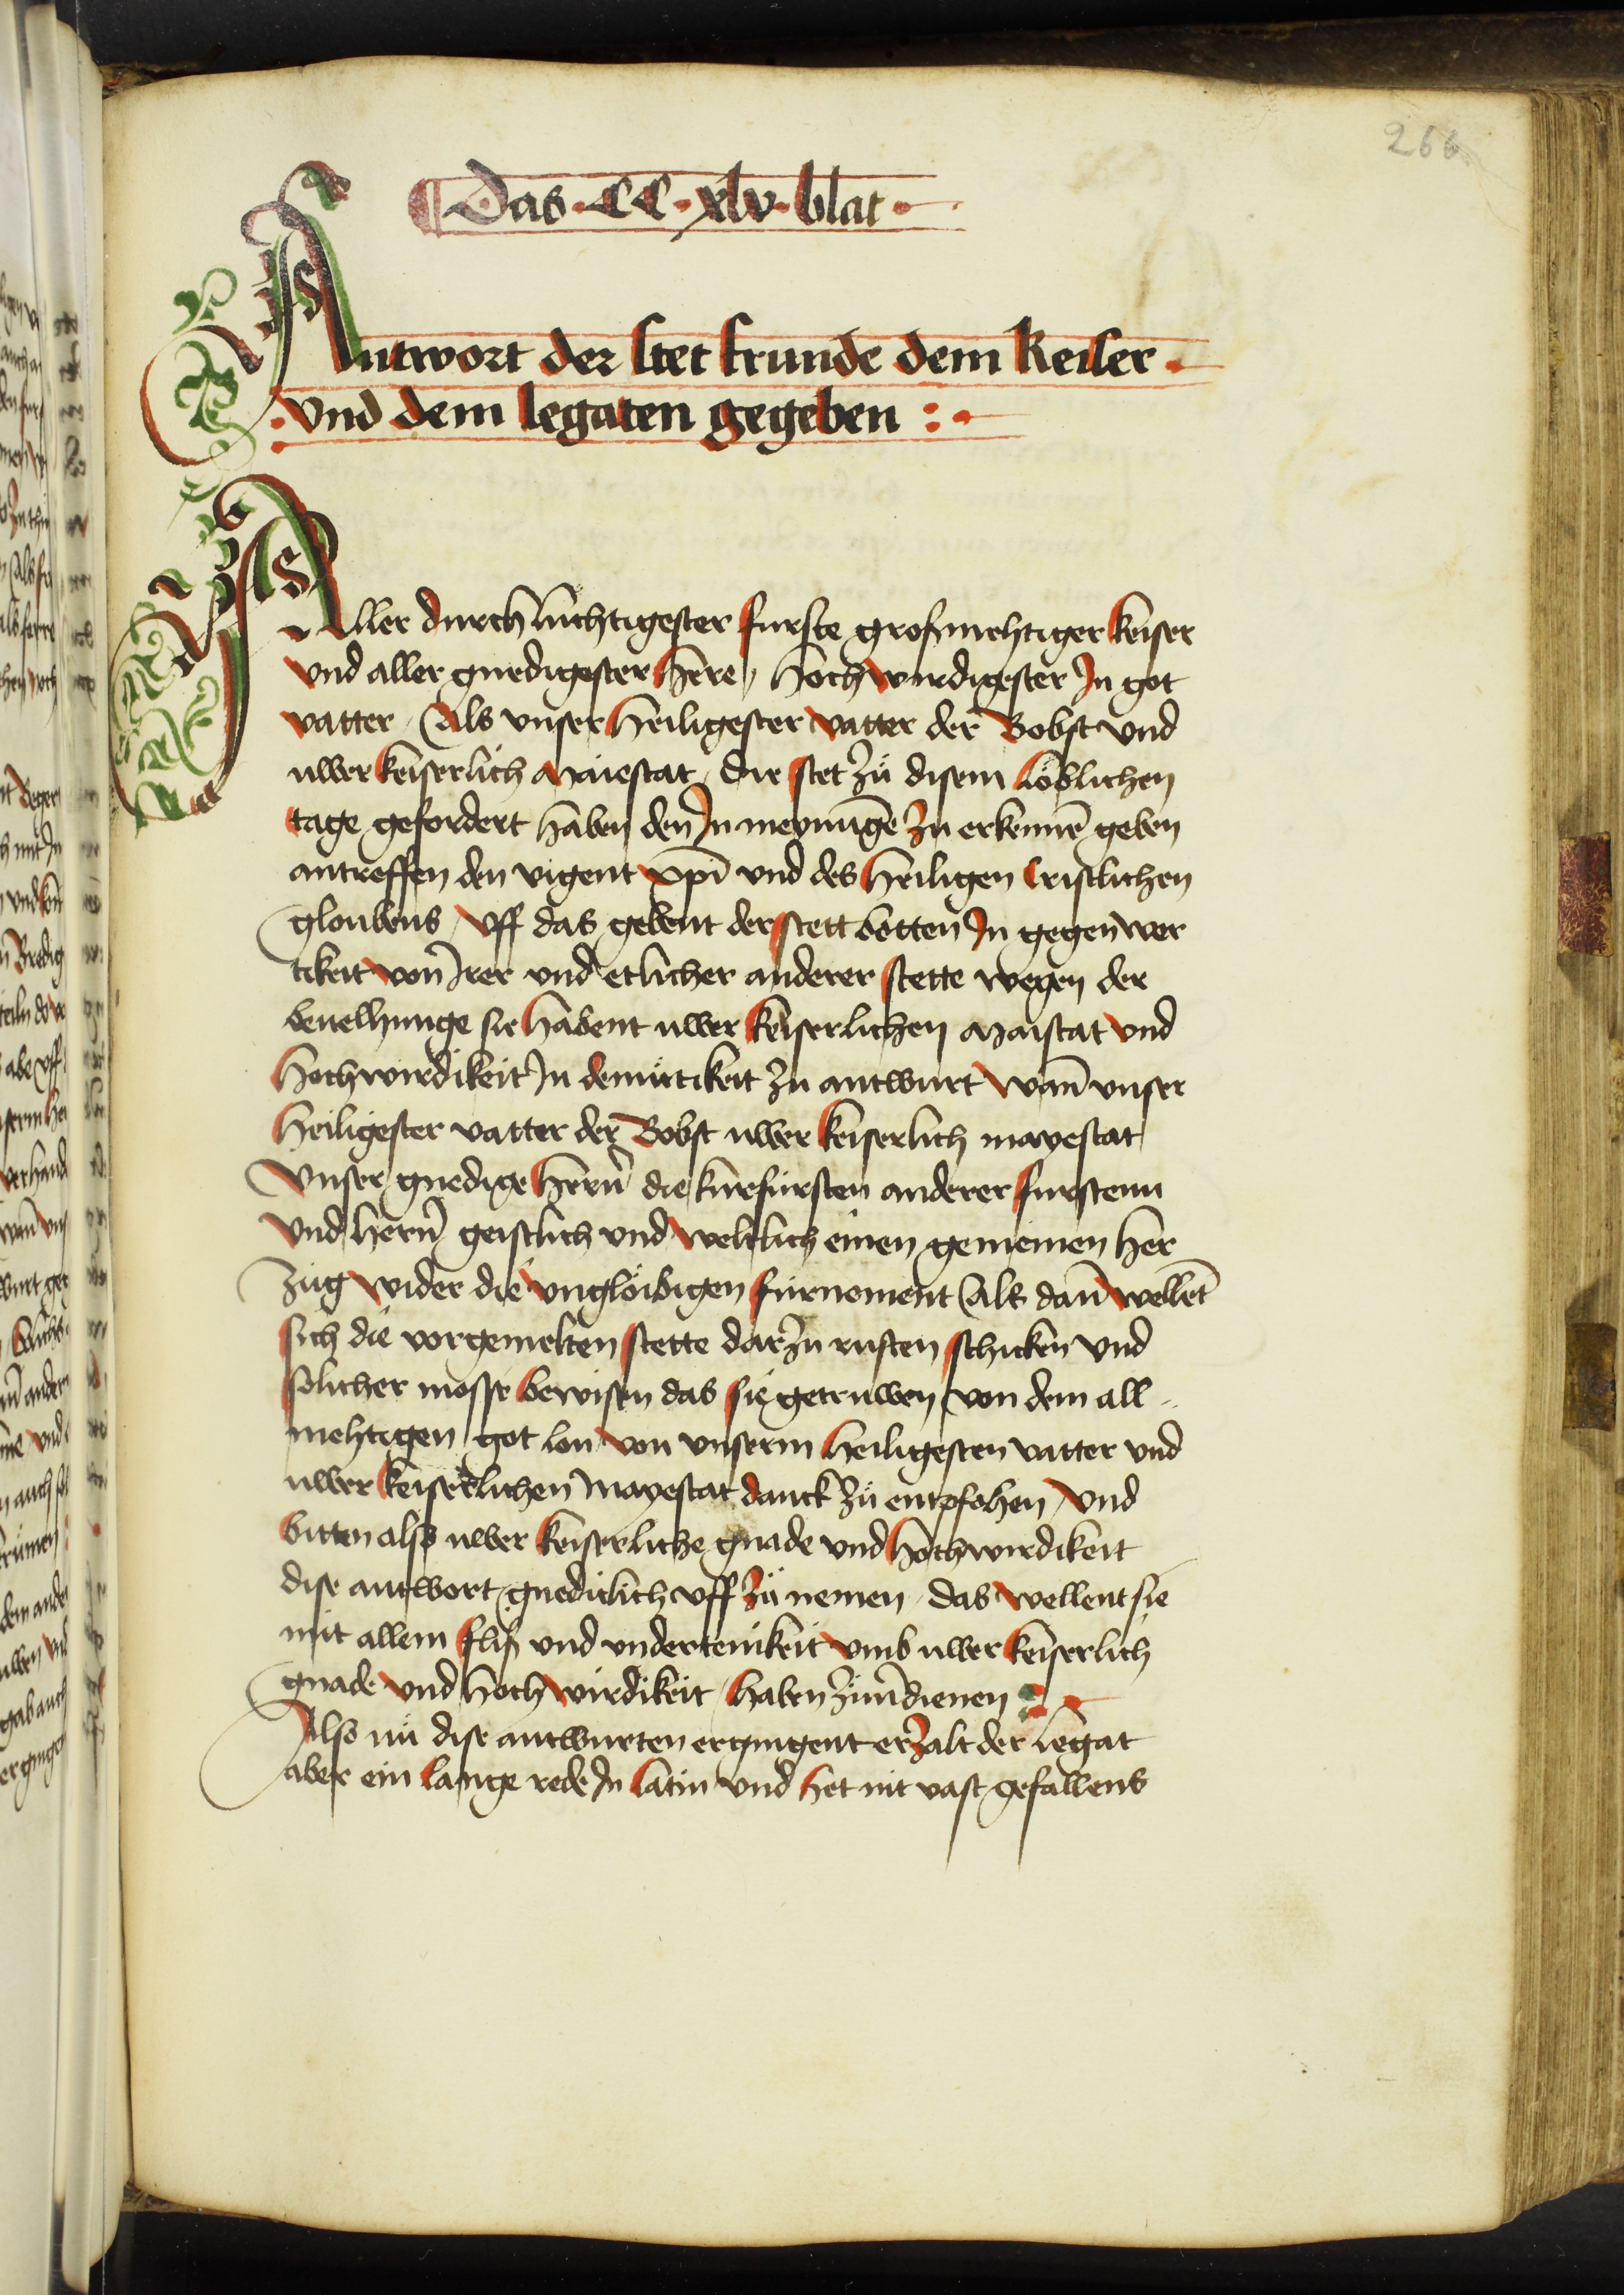 266
Das · CC · xlv · blat ·
Antwort der stet frunde dem keiser ·
vnd dem legaten gegeben : ·
Aller durchluchtigester furste großmehtiger keiser
vnd aller gnedigester here, Hochwirdigester In got
vatter, Als vnser heiligester vatter der Bobst vnd
uwer keiserlich maiestat, die stet zů disem löblichen
tage gefordert haben den In meynūge zu erkennē geben
antreffen den vigent xp̄i vnd des heiligen cristlichen
gloubens, Vff das gebent der stett botten In gegenwer
tikeit von Irer vnd etlicher anderer stette wegen der
beuelhunge sie habent uwer keiserlichen maistat vnd
hochwirdikeit In demůtikeit zu antwurt wañ vnser
heiligester vatter der Bobst uwer keiserlich mayestat
Vnser gnedige hern̄ die kurfürsten anderer furstenn
vnd hern̄ geistlich vnd weltlich einen gemeinen her
zug wider die vnglöibigen fürnement Als dañ wellēt
sich die vorgemelten stette darzu rusten schicken vnd
solicher mosse bewisen das sie getruwen von dem all
mehtigen got lon von vnserm heiligesten vatter vnd
uwer keiserlichen mayestat danck zů entpfohen, Vnd
bitten also uwer keiserliche gnade vnd hochwirdikeit
dise antwort gnediclich vff zů nemen, das wellent sie
mit allem fliß vnd vndertenikeit vmb uwer keiserlich
gnade vnd hochwirdikeit, haben zuuerdienen
Also nů dise antwurten ergingent erzalt der legat
aber ein lange rede In latin vnd het nit vast gefallens